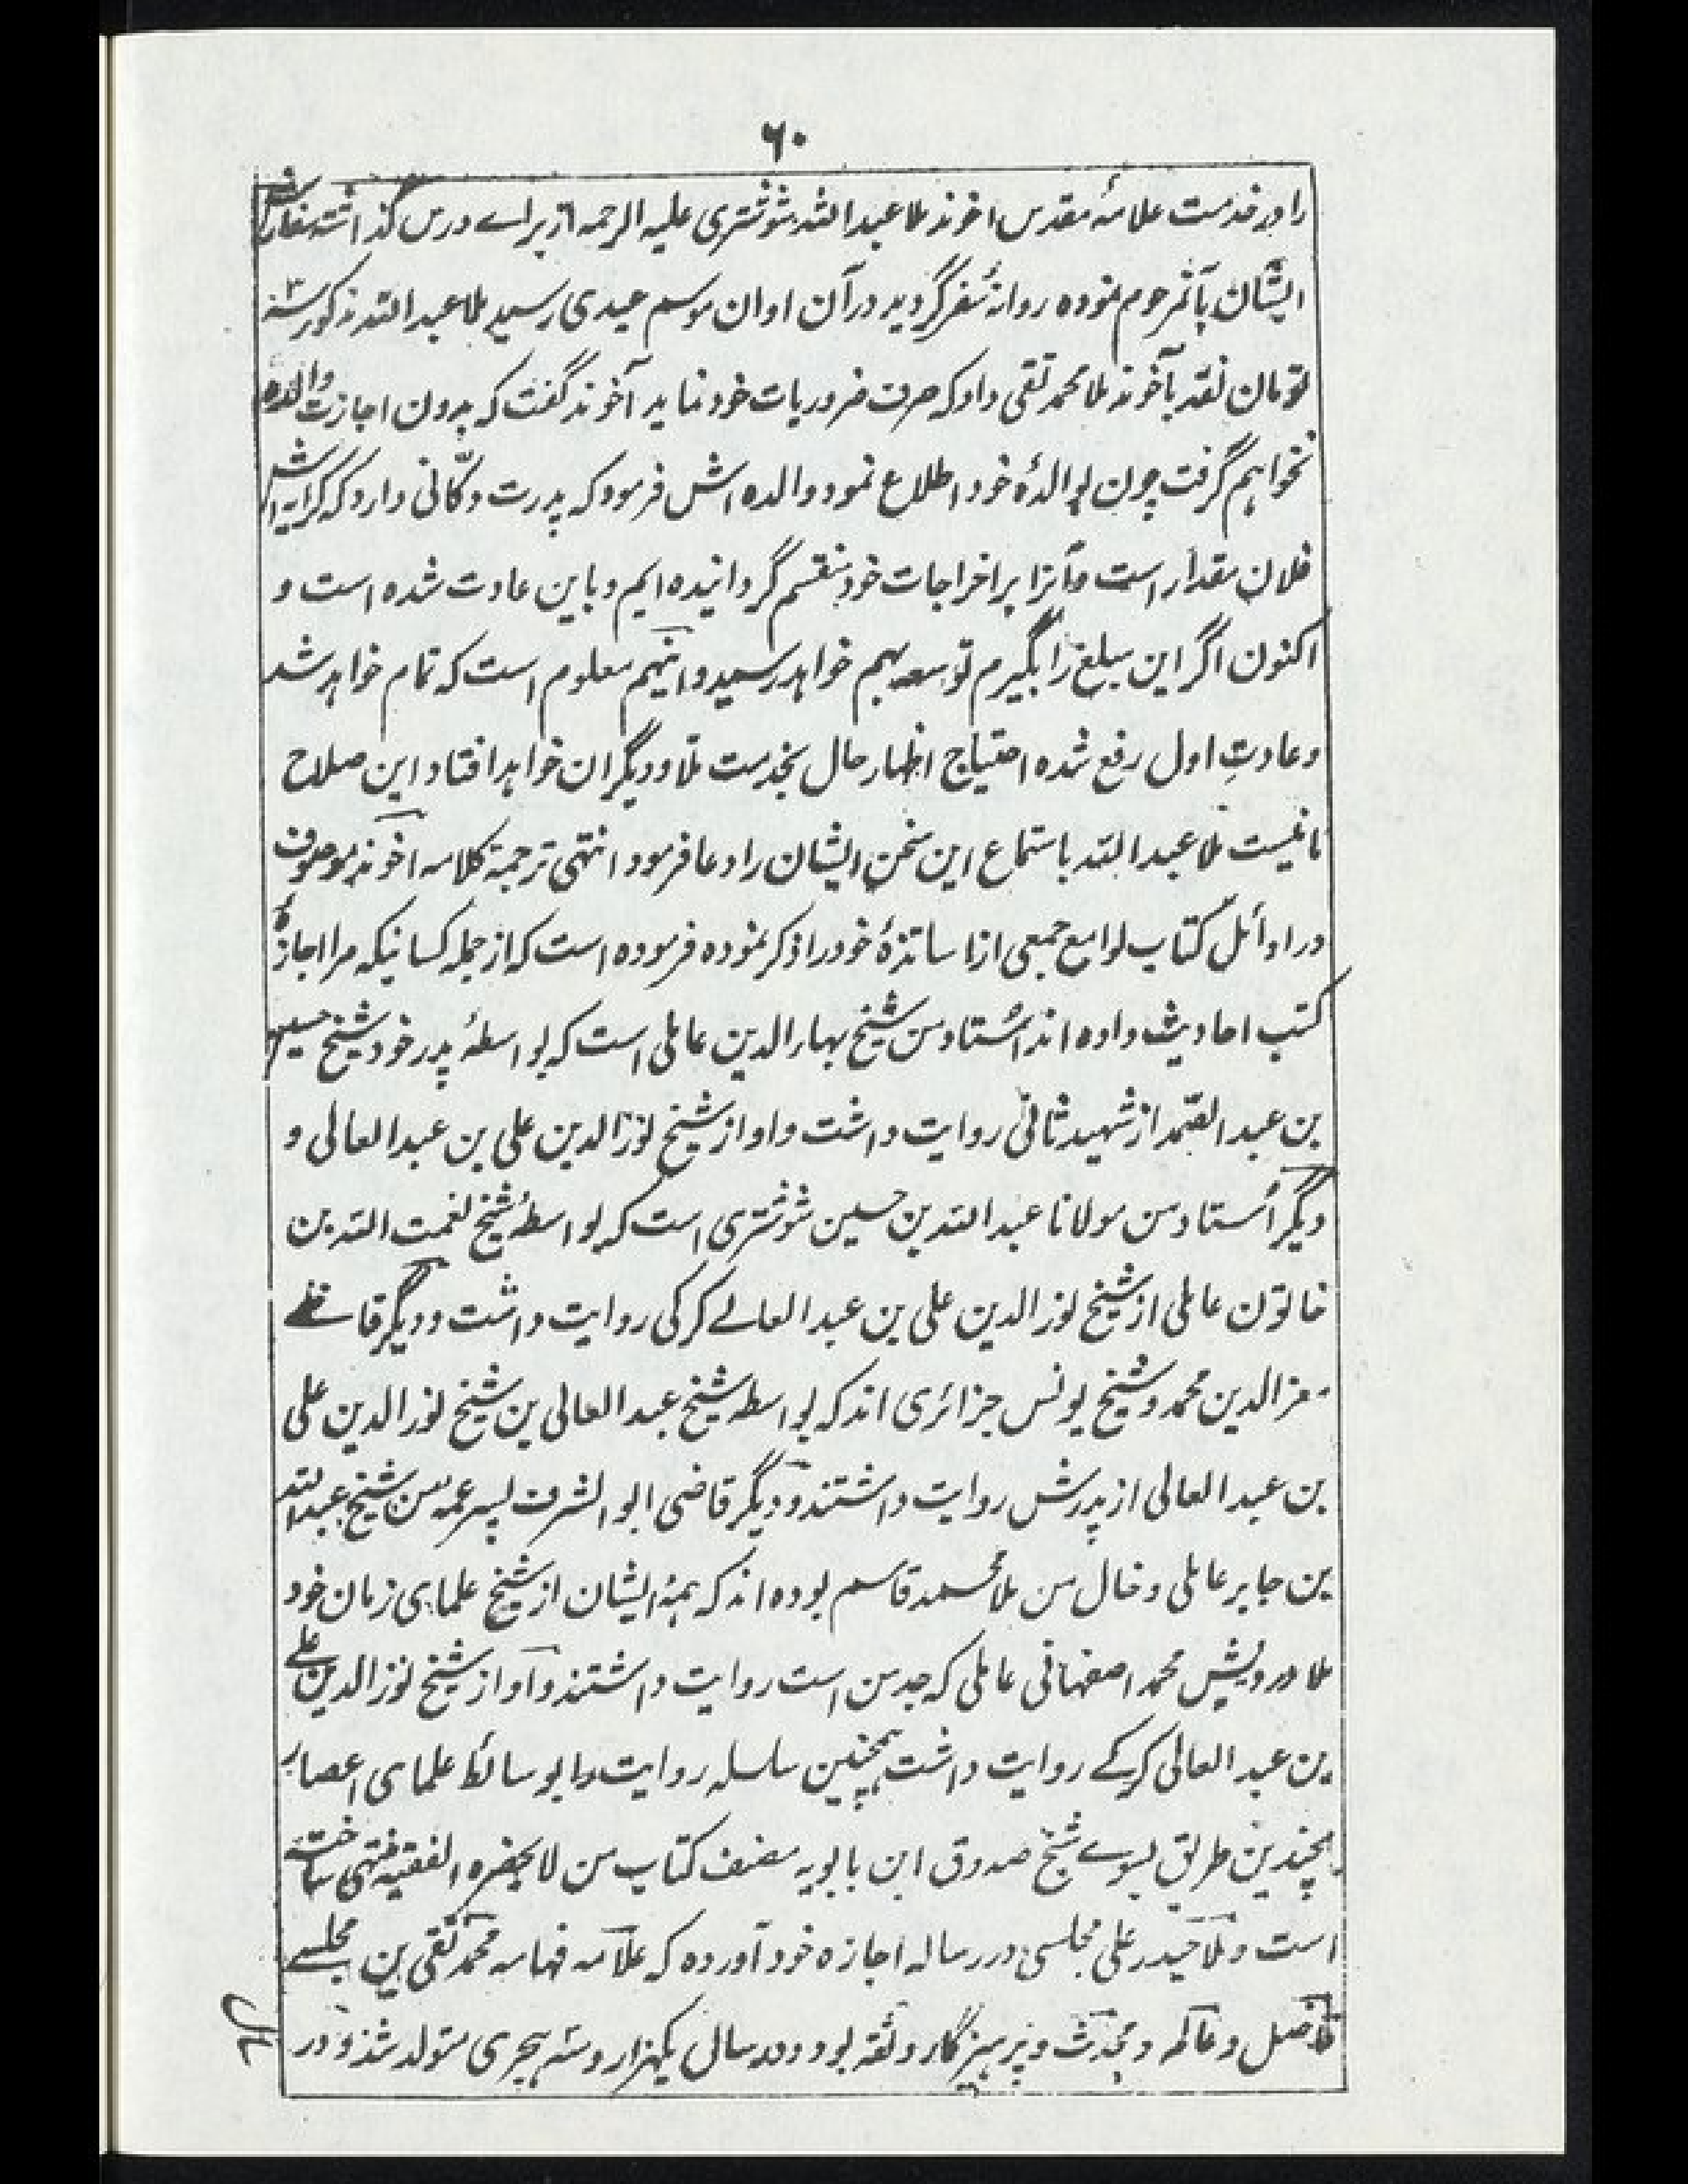 ۶۰
را در خدمت علامهٔ مقدس اخوند ملا عبد الله شوشتری علیه الرحمه از براے درس گذاشته سفارش
ایشان بآنمرحوم نموده روانهٔ سفر گردید در آن اوان موسم عیدی رسید ملا عبد الله مذکور سه
تومان نقد بآخوند ملا محمد تقی داد که صرف ضروریات خود نماید آخوند گفت که بدون اجازت والده
نخواهم گرفت چون بوالدهٔ خود اطلاع نمود والده اش فرمود که پدرت دکّانی دارد که کرایه اش
فلان مقدار است و آنرا بر اخراجات خود منقسم گردانیده ایم و باین عادت شده است و
اکنون اگر این مبلغ را بگیرم توسعه بهم خواهد رسید و اینهم معلوم است که تمام خواهد شد
و عادتِ اول رفع شده احتیاج اظهار حال بخدمت ملا و دیگران خواهد افتاد این صلاح
ما نیست ملا عبد الله باستماع این سخن ایشان را دعا فرمود انتهی ترجمة کلامه اخوند موصوف
در اوائل کتاب لوامع جمعی از اساتذهٔ خود را ذکر نموده فرموده است که از جمله کسانیکه مرا اجازهٔ
کتب احادیث داده اند اُستاد من شیخ بهار الدین عاملی است که بواسطهٔ پدر خود شیخ حسین
بن عبد الصّمد از شهید ثانی روایت داشت و او از شیخ نور الدین علی بن عبد العالی و
دیگر اُستاد من مولانا عبد الله بن حسین شوشتری است که بواسطهٔ شیخ نعمت الله بن
خاتون عاملی از شیخ نور الدین علی بن عبد العالے کرکی روایت داشت و دیگر قاضے
معز الدین محمد و شیخ یونس جزائری اند که بواسطه شیخ عبد العالی بن شیخ نور الدین علی
بن عبد العالی از پدرش روایت داشتند و دیگر قاضی ابو الشرف پسر عمه من شیخ عبد الله
بن جابر عاملی و خال من ملا محمد قاسم بوده اند که همهٔ ایشان از شیخ علمای زمان خود
ملا درویش محمد اصفهانی عاملی که جد من است روایت داشتند و او از شیخ نور الدین علے
بن عبد العالی کرکے روایت داشت همچنین سلسله روایت را بوسائط علمای اعصار
بچندین طریق بسوے شیخ صدوق ابن بابویه مصنف کتاب من لا یحضره الفقیه منتهی ساخته
است و ملّا حیدر علی مجلسی در رساله اجازه خود آورده که علاّمه فهامه محمد تقی بن مجلسے
فاضل و عالم و محدث و پرهیزگار و ثقه بود و در سال یکهزار و سه هجری متولد شد و در